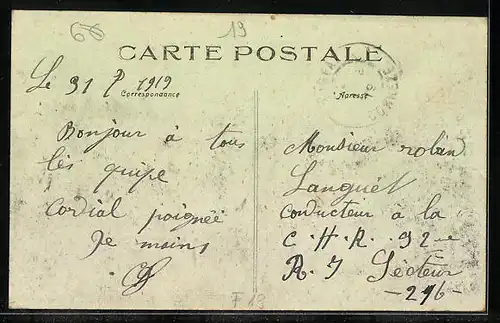 68
19
CARTE POSTALE
Correspondance
Adresse
Le 31 7 1919
Bonjour à tous
lès quipe
Cordial poignée
De mains
Monsieur robin
Languet
Conducteur à la
C. H. R. 92e
R. I Sècteur
- 216 -
F 19